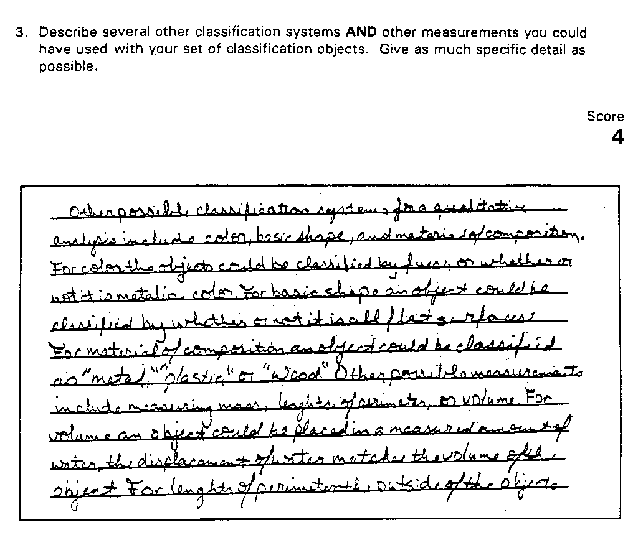 3. Describe several other classification systems AND other measurements you could
have used with your set of classification objects. Give as much specific detail as
possible.
Score
4
Other possible classification systems for a qualitative
analysis include color, basic shape, and material of composition.
For color the objects could be classified by or whether or
not it is metalic color. For basic shape an object could be
classified by whether or not it is all flat surfaces
For material of composition an object could be classified
as "metal" "plastic" or "wood" Other possible measurements
include measuring mass, lenghts of perimeter, or volume. For
volume an object could be placed in a measured amount of
water, the displacement of water matches the volume of the
object For lenghts of perimeter the outside of the object